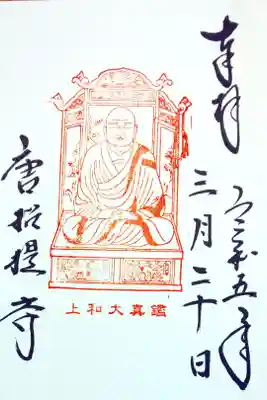 奉拝
令和五年
三月二十日
鑑真大和上
唐招提寺